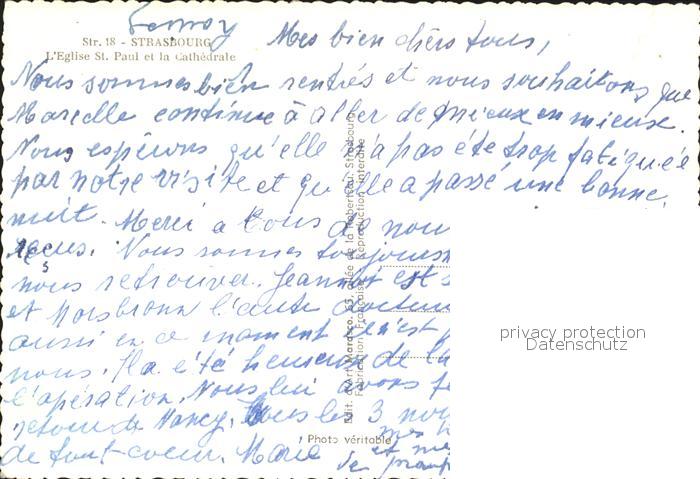 Str. 18 - STRASBOURG
L'Eglise St. Paul et la Cathédrale
Mes bien chers tous,
Nous sommes bien rentrés et nous souhaitons que
Marcelle continue à aller de mieux en mieux.
Nous espérons qu'elle n'a pas été trop fatiguée
par notre visite et qu'elle a passé une bonne
nuit. Merci à tous de nou
reçus. Nous sommes toujours
nous retrouver. Jeannot est s
et
aussi en ce moment ce n'est p
nous. Il a été heureux de
l'opération. Nous lui avons
retour de Nancy. Tous les 3 nou
de tout coeur. Marie
mes
et me
de
Edit. d'Art
Fabrication Française - Reproduction interdite
Photo véritable
privacy protection
Datenschutz